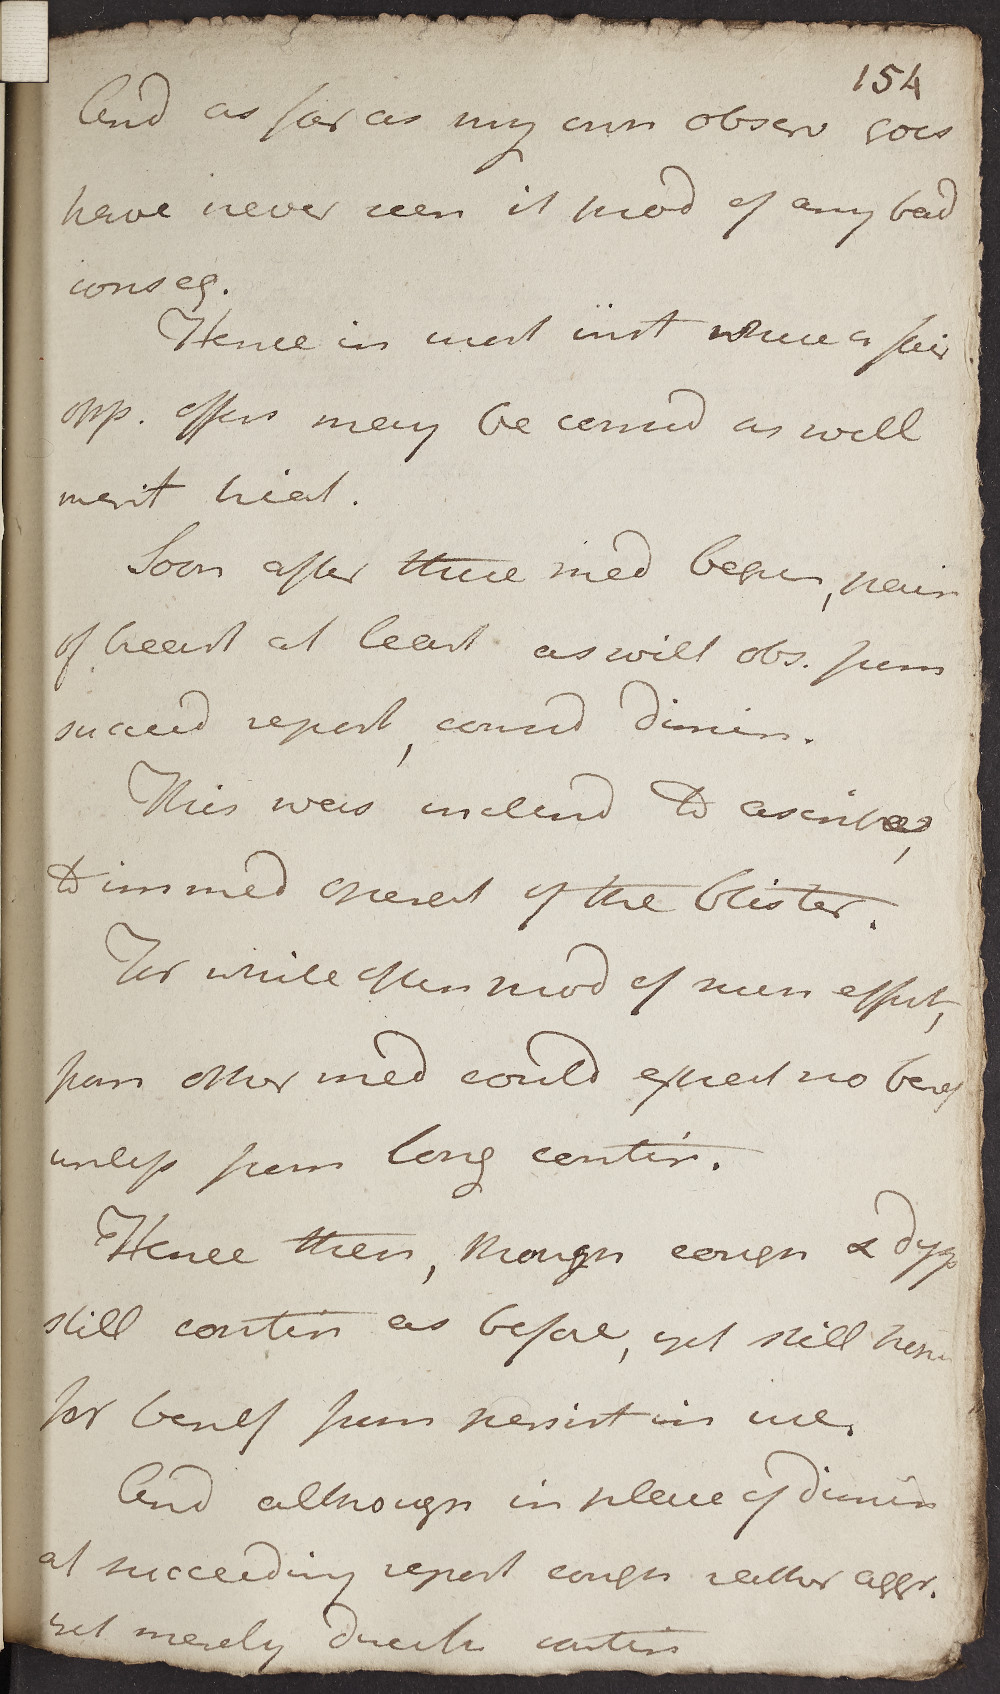 154
And as far as my own observ goes
have never seen it prod of any bad
conseq.
Hence in most inst where a fair
opp. offers may be consid as well
merit trial.
Soon after these med begun, pain
of breast at least as will obs. from
succeed report, consid dimin.
This was inclind to ascribe,
to immed operat of the blister.
For while often prod of such effect,
from other med could expect no benef
unless from long contin.
Hence then, though cough & dysp
still contin as before, yet still hop
for benef from persist in use.
And although in place of dimin
at succeeding report cough rather aggr.
yet merely direct contin